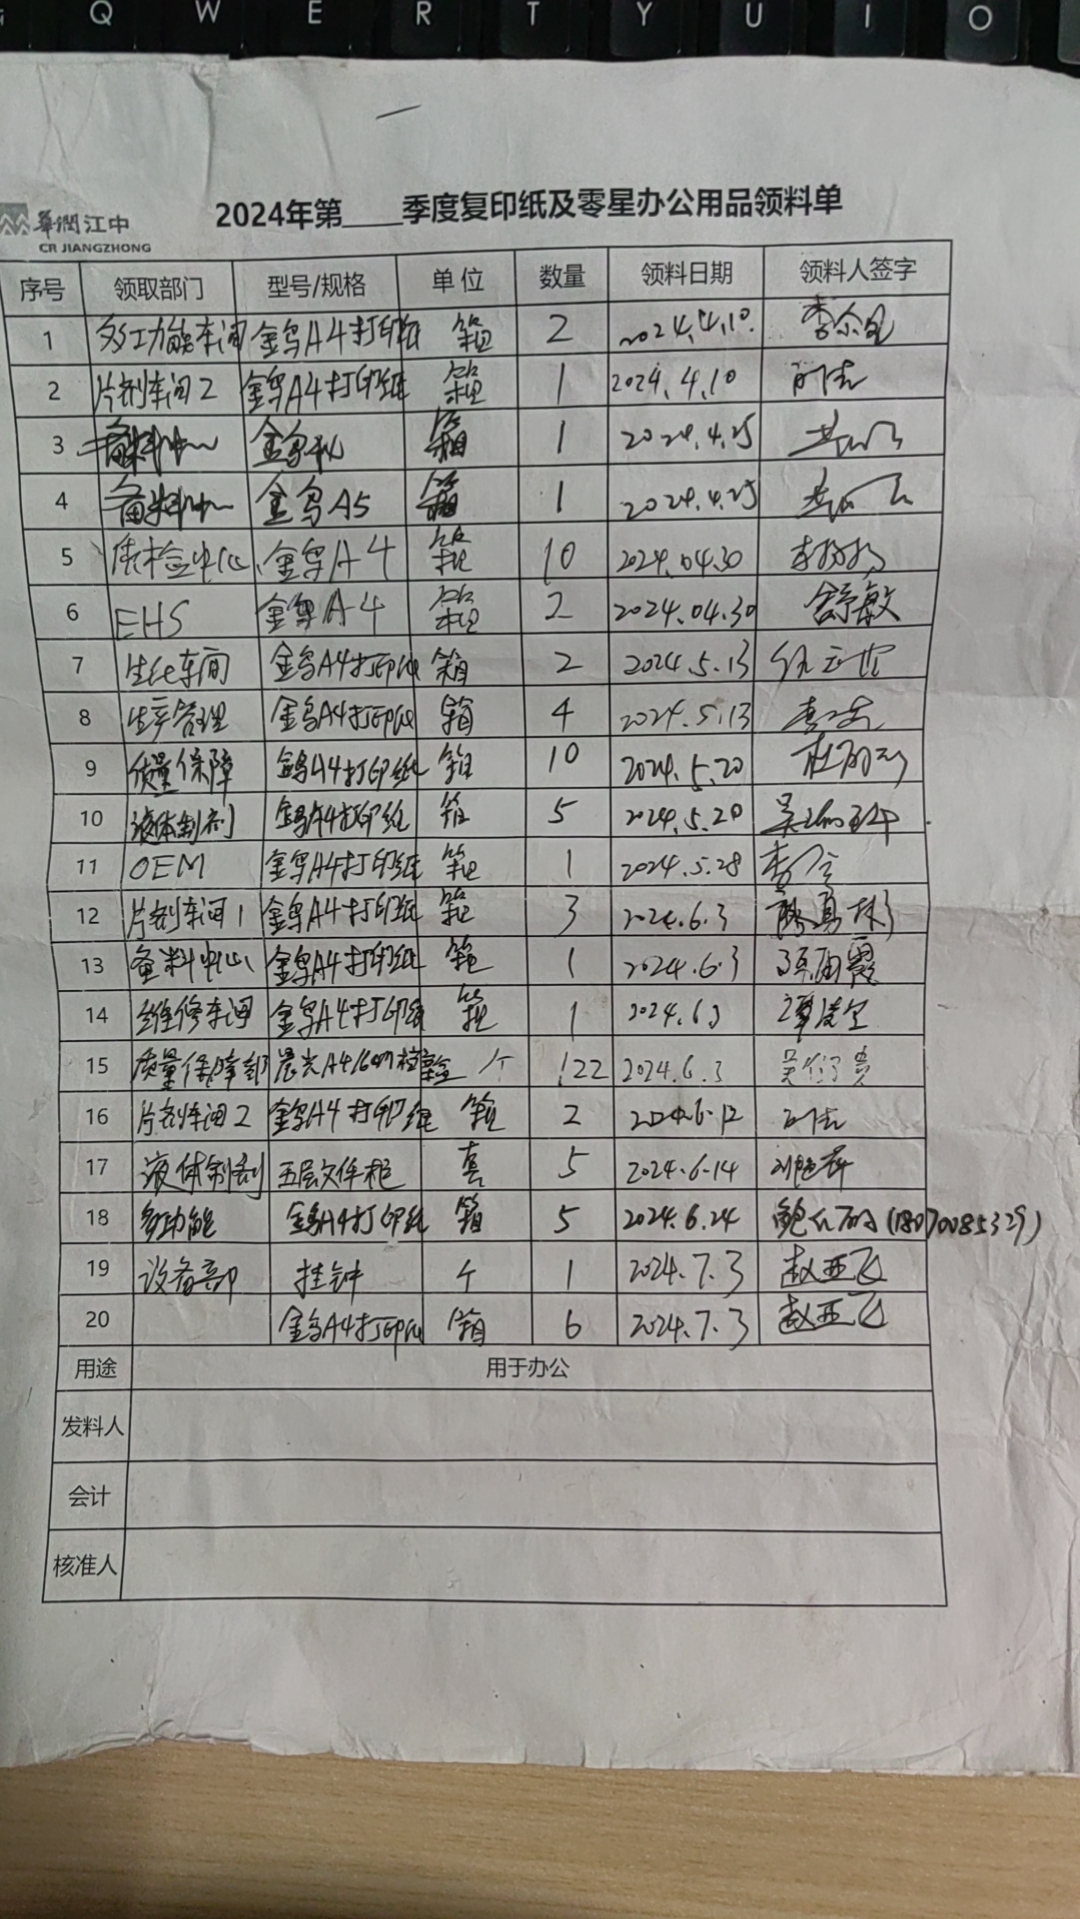 Q W E R T Y U I O
華潤江中
CR JIANGZHONG
2024年第____季度复印纸及零星办公用品领料单
序号 领取部门 型号/规格 单位 数量 领料日期 领料人签字
1 多功能车间 金鸟A4打印纸 箱 2 2024.4.10.
2 片剂车间2 金鸟A4打印纸 箱 1 2024.4.10
3 备料中心 金鸟 箱 1 2024.4.25
4 备料中心 金鸟A5 箱 1 2024.4.25
5 质检中心 金鸟A4 箱 10 2024.04.30
6 EHS 金鸟A4 箱 2 2024.04.30 舒敏
7 生化车间 金鸟A4打印纸 箱 2 2024.5.13
8 生产管理 金鸟A4打印纸 箱 4 2024.5.13
9 质量保障 金鸟A4打印纸 箱 10 2024.5.20
10 液体制剂 金鸟A4打印纸 箱 5 2024.5.20
11 OEM 金鸟A4打印纸 箱 1 2024.5.28
12 片剂车间1 金鸟A4打印纸 箱 3 2024.6.3
13 备料中心 金鸟A4打印纸 箱 1 2024.6.3
14 维修车间 金鸟A4打印纸 箱 1 2024.6.3
15 质量保障部 晨光A4 档案盒 个 122 2024.6.3
16 片剂车间2 金鸟A4打印纸 箱 2 2024.6.12
17 液体制剂 五层文件柜 套 5 2024.6.14
18 多功能 金鸟A4打印纸 箱 5 2024.6.24 (18070085329)
19 设备部 挂钟 个 1 2024.7.3 赵亚飞
20 金鸟A4打印纸 箱 6 2024.7.3 赵亚飞
用途 用于办公
发料人
会计
核准人